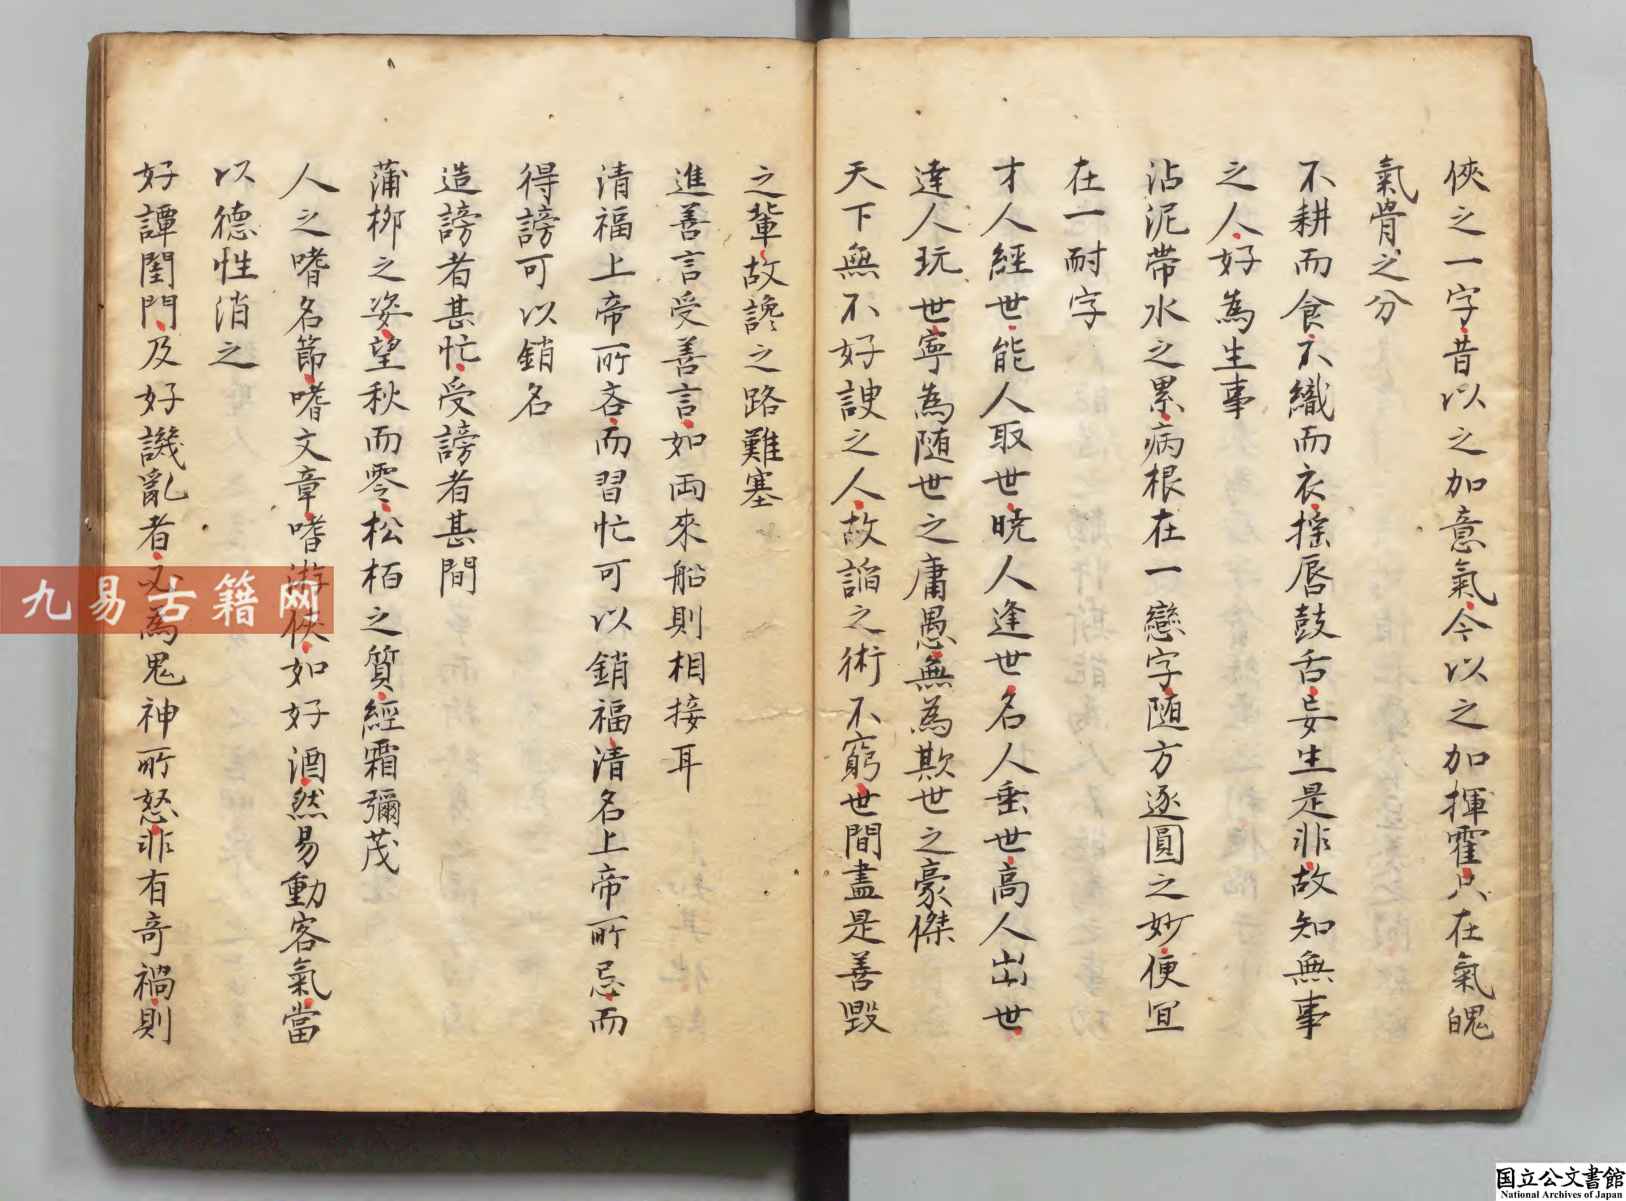 俠之一字昔以之加意氣今以之加揮霍只在氣魄
氣骨之分
不耕而食不織而衣搖唇鼓舌妄生是非故知無事
之人好為生事
沾泥帶水之累病根在一戀字随方逐圓之妙便宜
在一耐字
才人經世能人取世曉人逢世名人垂世高人出世
達人玩世寧為随世之庸愚無為欺世之豪傑
天下無不好諛之人故謟之術不窮世間盡是善毀
之輩故讒之路難塞
進善言受善言如両來船則相接耳
清福上帝所吝而習忙可以銷福清名上帝所忌而
得謗可以銷名
造謗者甚忙受謗者甚間
蒲柳之姿望秋而零松栢之質經霜彌茂
人之嗜名節嗜文章嗜游俠如好酒然易動客氣當
以德性消之
好譚閨門及好譏亂者必為鬼神所怒非有奇禍則
九易古籍网
国立公文書館
National Archives of Japan